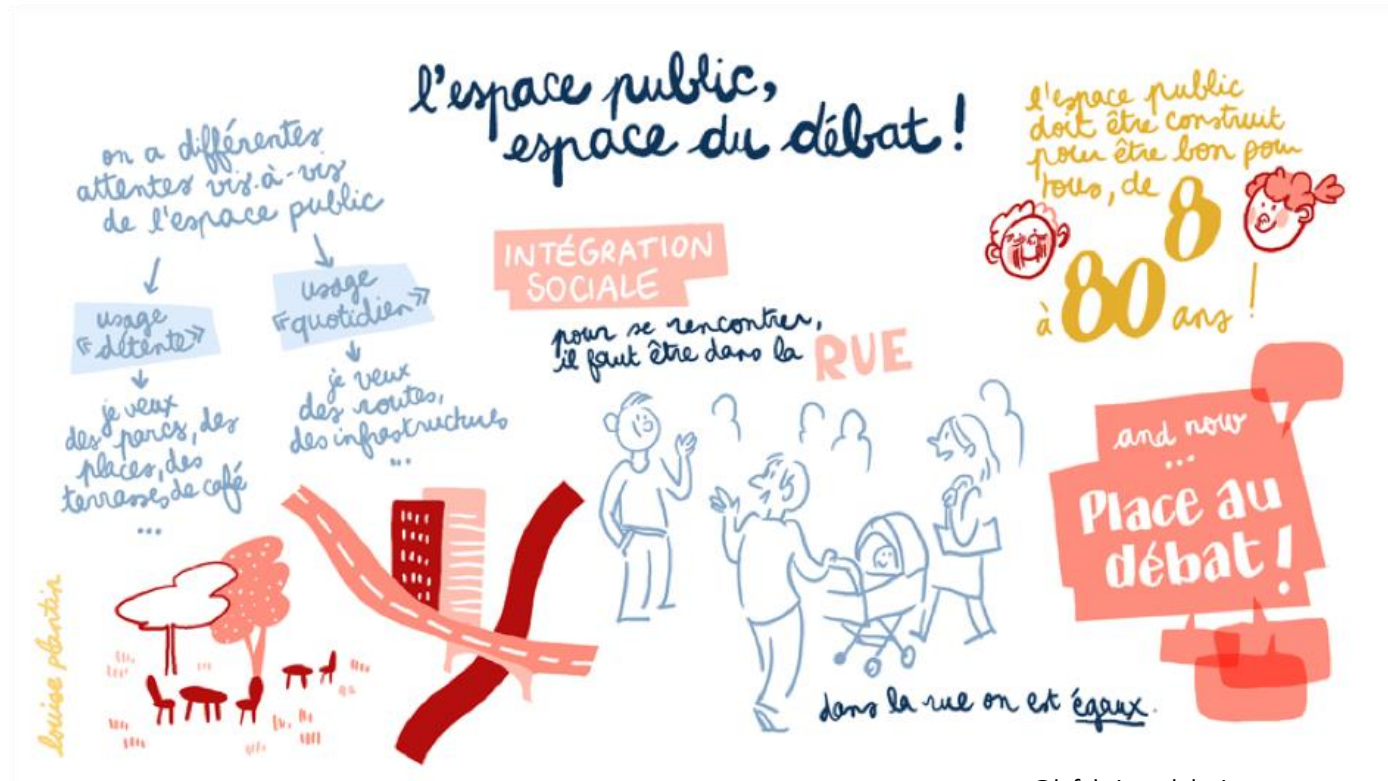 l'espace public,
espace du débat !
on a différentes
attentes vis-à-vis
de l'espace public
usage
"détente"
je veux
des parcs, des
places, des
terrasses de café
...
usage
"quotidien"
je veux
des routes,
des infrastructures
...
INTÉGRATION
SOCIALE
pour se rencontrer,
il faut être dans la RUE
dans la rue on est égaux.
l'espace public
doit être construit
pour être bon pour
tous, de 8
à 80 ans !
and now
...
Place au
débat !
louise plantin